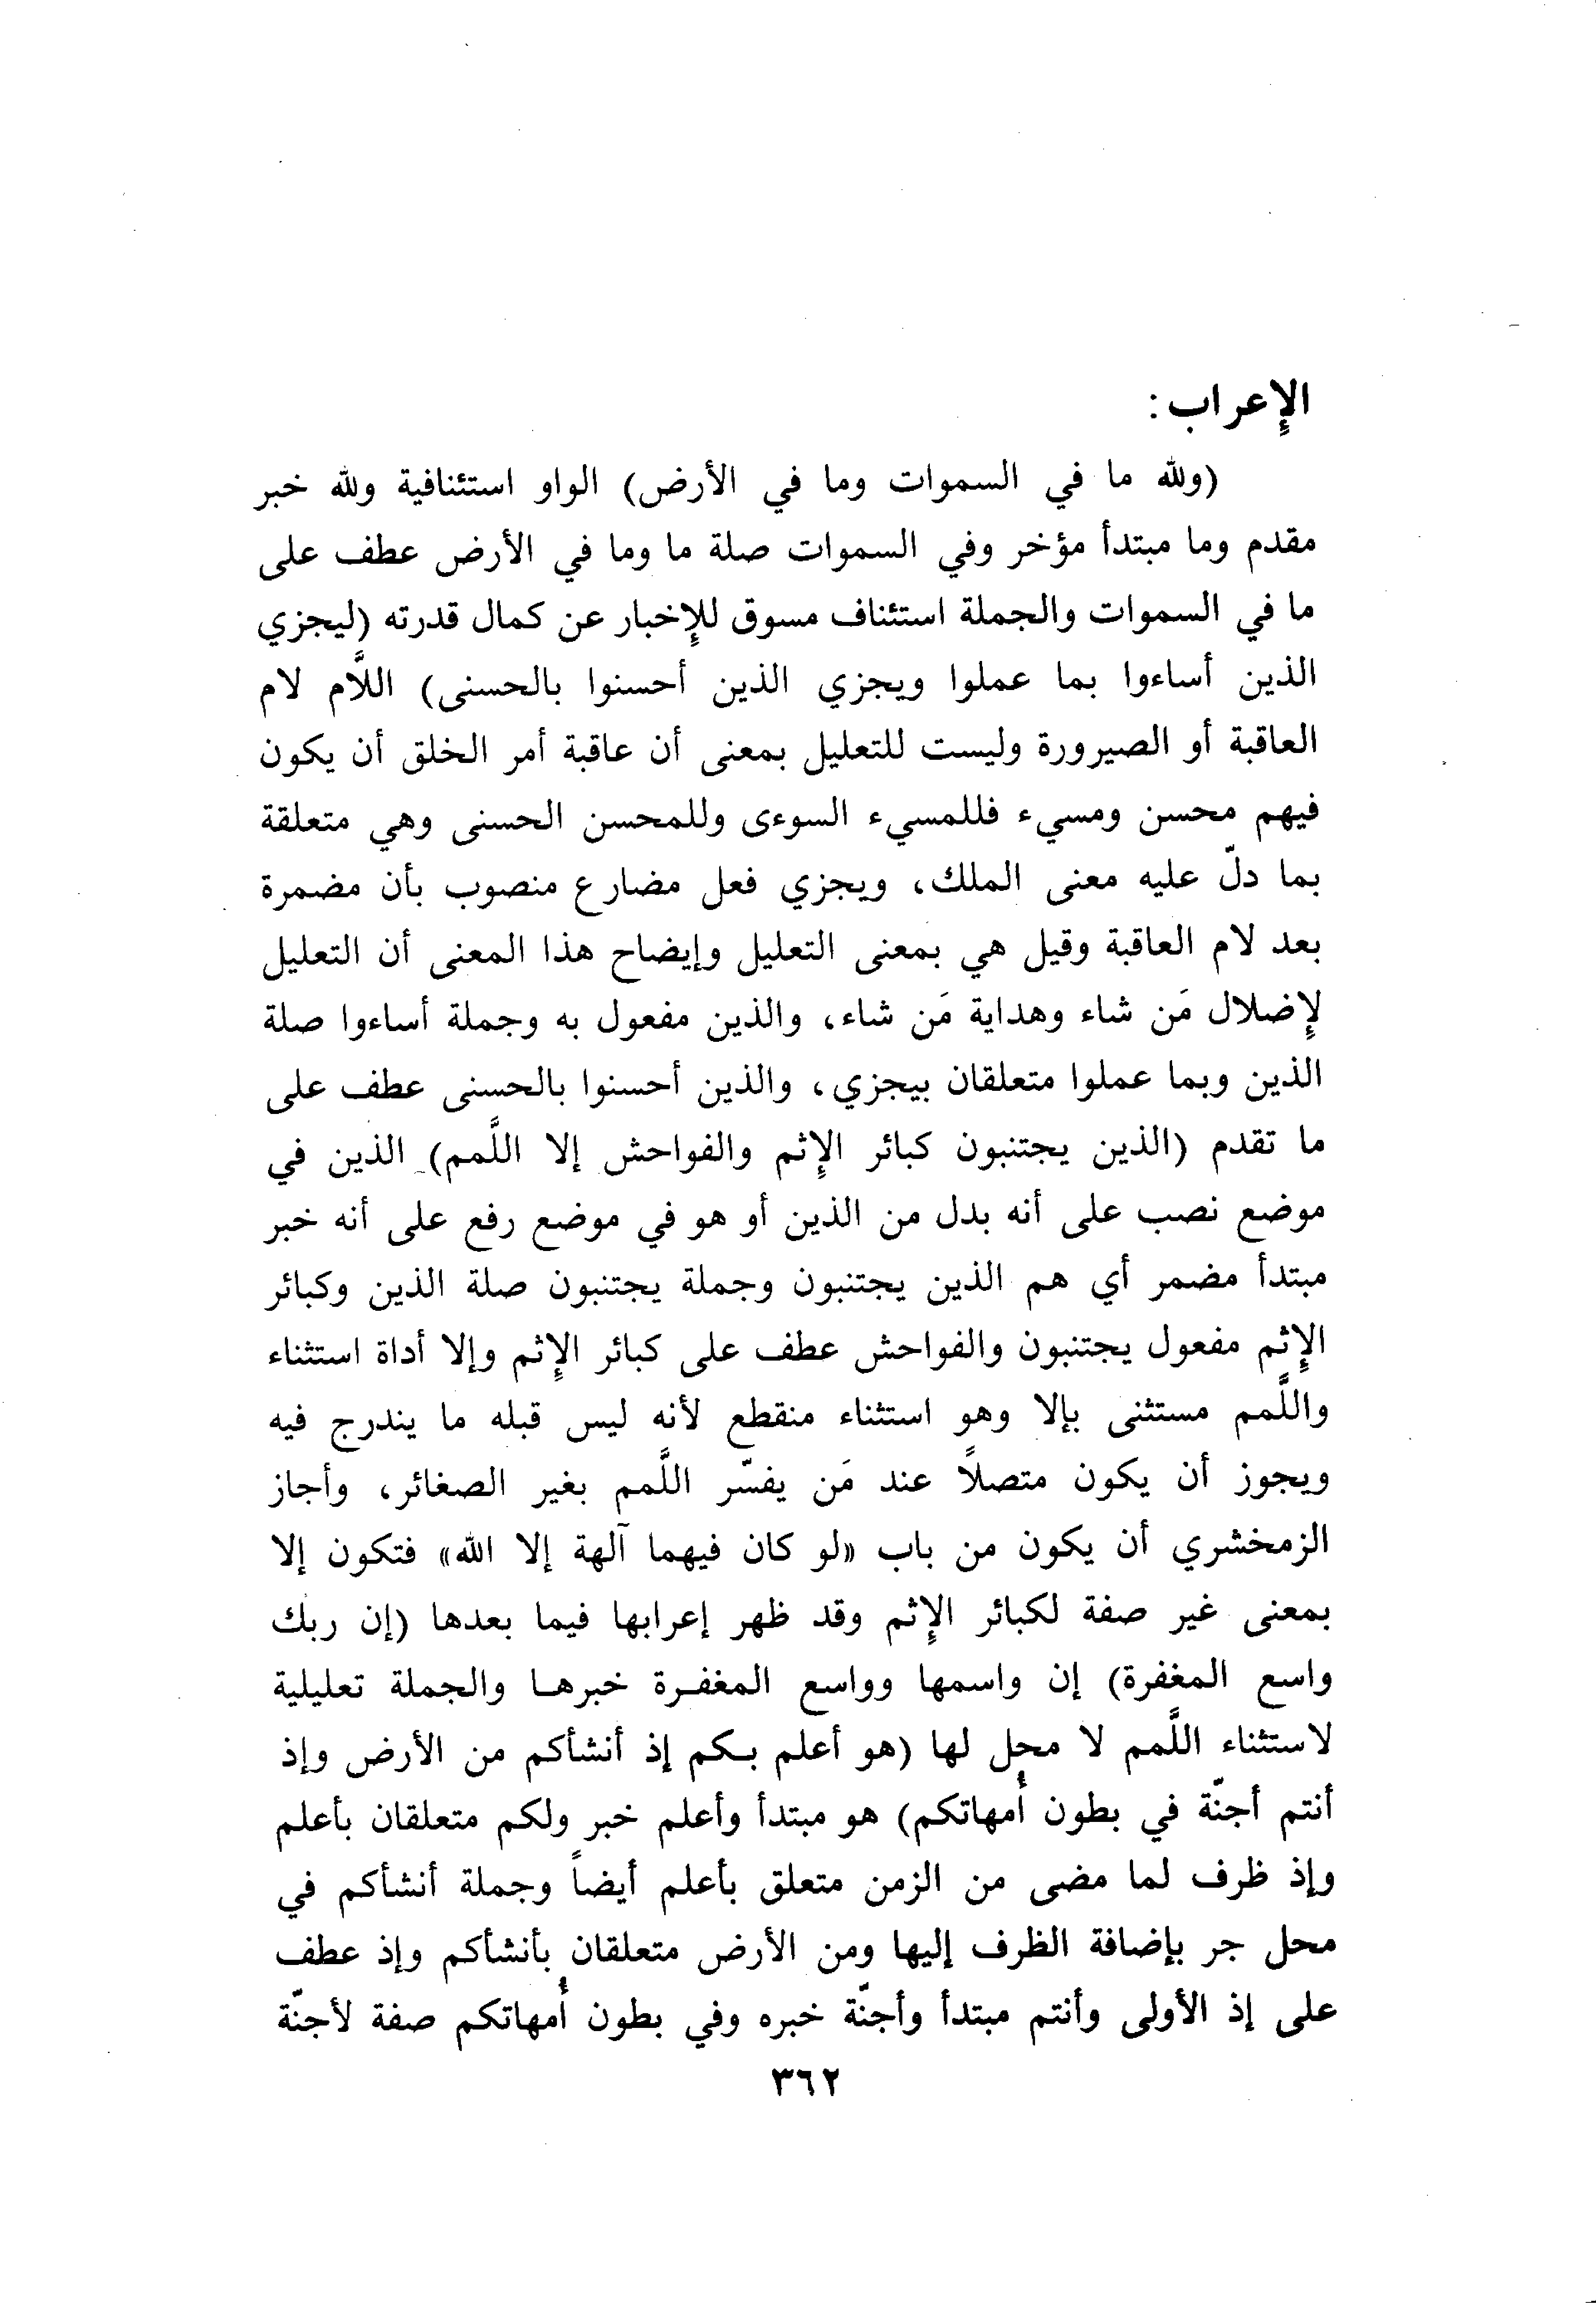 الإعراب :
(ولله ما في السموات وما في الأرض) الواو استئنافية ولله خبر
مقدم وما مبتدأ مؤخر وفي السموات صلة ما وما في الأرض عطف على
ما في السموات والجملة استئناف مسوق للإخبار عن كمال قدرته (ليجزي
الذين أساءوا بما عملوا ويجزي الذين أحسنوا بالحسنى) اللَّام لام
العاقبة أو الصيرورة وليست للتعليل بمعنى أن عاقبة أمر الخلق أن يكون
فيهم محسن ومسيء فللمسيء السوءى وللمحسن الحسنى وهي متعلقة
بما دلّ عليه معنى الملك، ويجزي فعل مضارع منصوب بأن مضمرة
بعد لام العاقبة وقيل هي بمعنى التعليل وإيضاح هذا المعنى أن التعليل
لإضلال مَن شاء وهداية مَن شاء، والذين مفعول به وجملة أساءوا صلة
الذين وبما عملوا متعلقان بيجزي، والذين أحسنوا بالحسنى عطف على
ما تقدم (الذين يجتنبون كبائر الإثم والفواحش إلا اللَّمم) الذين في
موضع نصب على أنه بدل من الذين أو هو في موضع رفع على أنه خبر
مبتدأ مضمر أي هم الذين يجتنبون وجملة يجتنبون صلة الذين وكبائر
الإثم مفعول يجتنبون والفواحش عطف على كبائر الإثم وإلا أداة استثناء
واللَّمم مستثنى بإلا وهو استثناء منقطع لأنه ليس قبله ما يندرج فيه
ويجوز أن يكون متصلاً عند مَن يفسّر اللَّمم بغير الصغائر، وأجاز
الزمخشري أن يكون من باب «لو كان فيهما آلهة إلا الله» فتكون إلا
بمعنى غير صفة لكبائر الإثم وقد ظهر إعرابها فيما بعدها (إن ربك
واسع المغفرة) إن واسمها وواسع المغفرة خبرها والجملة تعليلية
لاستثناء اللَّمم لا محل لها (هو أعلم بكم إذ أنشأكم من الأرض وإذ
أنتم أجنّة في بطون أُمهاتكم) هو مبتدأ وأعلم خبر ولكم متعلقان بأعلم
وإذ ظرف لما مضى من الزمن متعلق بأعلم أيضاً وجملة أنشأكم في
محل جر بإضافة الظرف إليها ومن الأرض متعلقان بأنشأكم وإذ عطف
على إذ الأولى وأنتم مبتدأ وأجنّة خبره وفي بطون أُمهاتكم صفة لأجنّة
٣٦٢